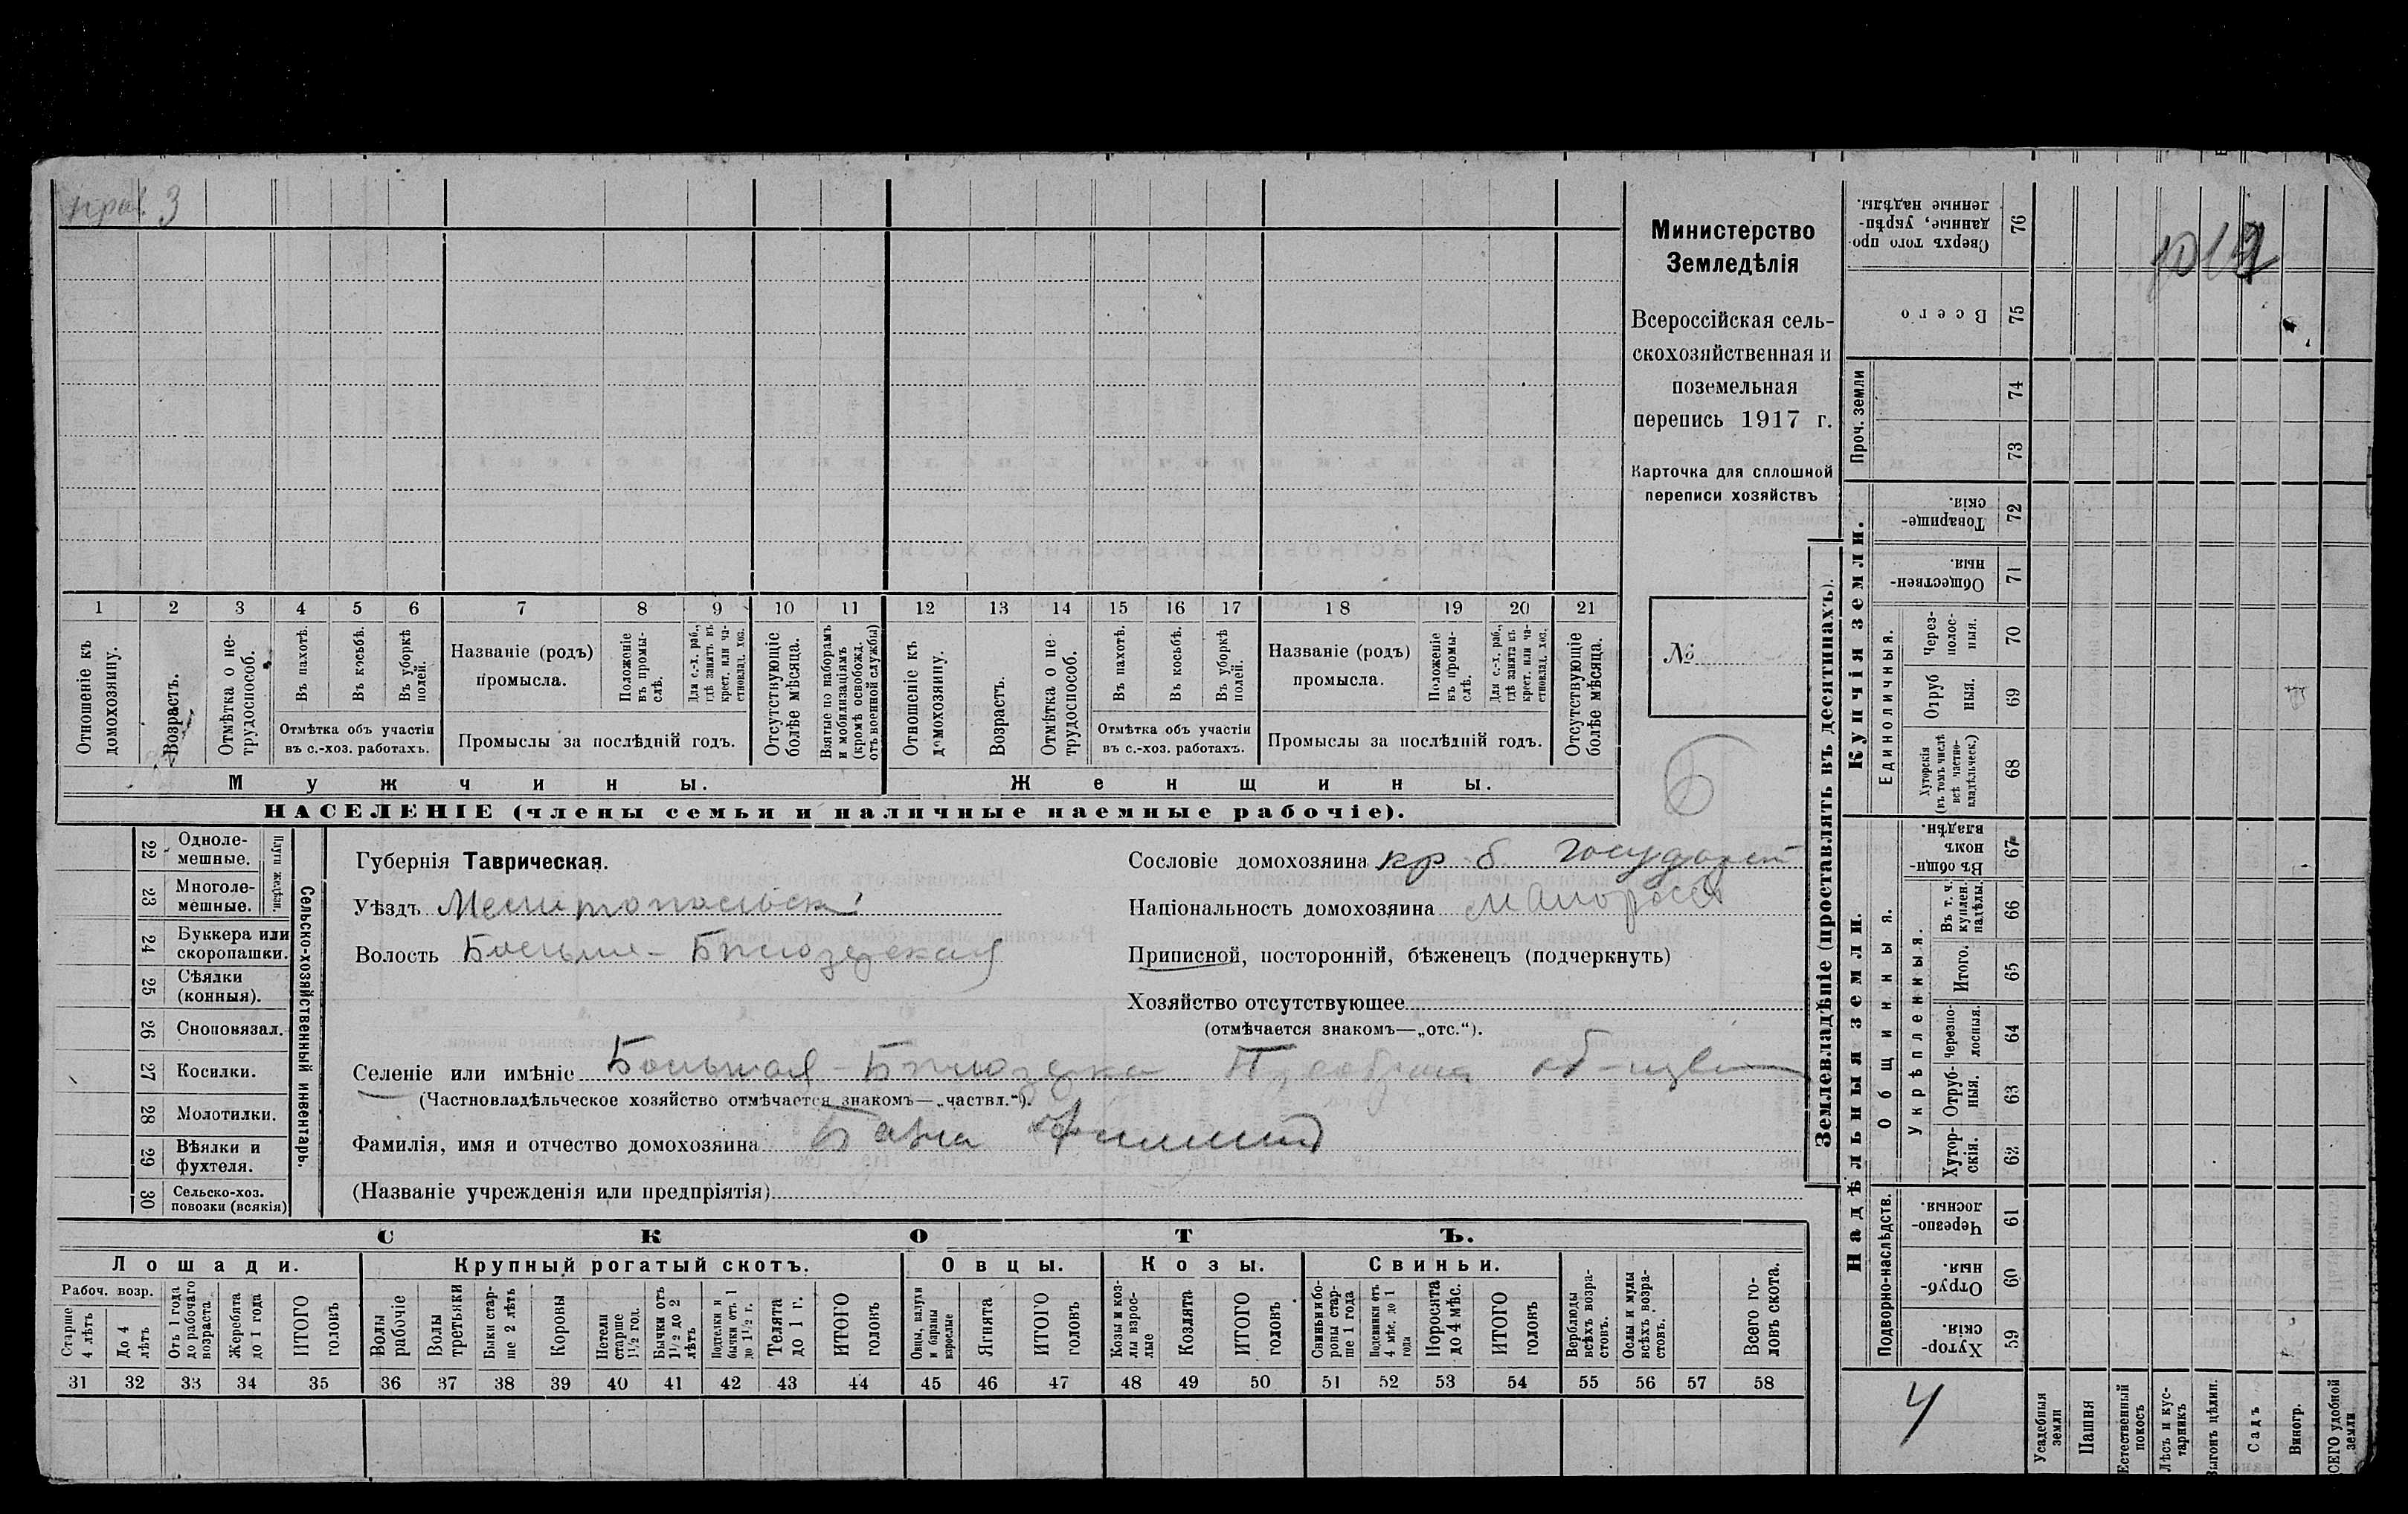 3
1 2 3 4 5 6 7 8 9 10 11 12 13 14 15 16 17 18 19 20 21
Отношеніе къ домохозяину.
Возрастъ.
Отмѣтка о не-
трудоспособ.
Въ пахотѣ.
Въ косьбѣ.
Въ уборкѣ полей.
Отмѣтка объ участіи
въ с.-хоз. работахъ.
Названіе (родъ)
промысла.
Положеніе
въ промы-
слѣ.
Для с.-х. раб.,
гдѣ занятъ въ
крест. или ча-
стновлад. хоз.
Промыслы за послѣдній годъ.
Отсутствующіе
болѣе мѣсяца.
Взятые по наборамъ
и мобилизаціямъ
(кромѣ освобожд.
отъ военной службы)
Отношеніе къ
домохозяину.
Возрастъ.
Отмѣтка о не-
трудоспособ.
Въ пахотѣ.
Въ косьбѣ.
Въ уборкѣ
полей.
Отмѣтка объ участіи
въ с.-хоз. работахъ.
Названіе (родъ)
промысла.
Положеніе
въ промы-
слѣ.
Для с.-х. раб.,
гдѣ занята въ
крест. или ча-
стновлад. хоз.
Промыслы за послѣдній годъ.
Отсутствующіе
болѣе мѣсяца.
Мужчины.
Женщины.
НАСЕЛЕНІЕ (члены семьи и наличные наемные рабочіе).
Министерство
Земледѣлія
Всероссійская сель-
скохозяйственная и
поземельная
перепись 1917 г.
Карточка для сплошной
переписи хозяйствъ
№
Б
22 Одноле-
мешные.
23 Многоле-
мешные.
Плуги желѣзн.
24 Буккера или
скоропашки.
25 Сѣялки
(конныя).
26 Сноповязал.
27 Косилки.
28 Молотилки.
29 Вѣялки и
фухтеля.
30 Сельско-хоз.
повозки (всякія)
Сельско-хозяйственный инвентарь.
Губернія Таврическая.
Уѣздъ Мелитопольскі
Волость Больше-Бѣлозерская
Сословіе домохозяина кр б государст
Національность домохозяина малоросс
Приписной, посторонній, бѣженецъ (подчеркнуть)
Хозяйство отсутствующее
(отмѣчается знакомъ—„отс.“).
Селеніе или имѣніе Большая-Бѣлозерка
(Частновладѣльческое хозяйство отмѣчается знакомъ—„частвл.“).
Фамилія, имя и отчество домохозяина Филипп
(Названіе учрежденія или предпріятія)
СКОТЪ.
Лошади. Крупный рогатый скотъ. Овцы. Козы. Свиньи.
Рабоч. возр.
Старше
4 лѣтъ
До 4
лѣтъ
Отъ 1 года
до рабочаго
возраста
Жеребята
до 1 года
ИТОГО
головъ
Волы
рабочіе
Волы
третьяки
Быки стар-
ше 2 лѣтъ
Коровы
Нетели
старше
1½ год.
Бычки отъ
1½ до 2
лѣтъ
Подтелки и
бычки отъ 1
до 1½ г.
Телята
до 1 г.
ИТОГО
головъ
Овцы, валухи
и бараны
взрослые
Ягнята
ИТОГО
головъ
Козы и коз-
лы взрос-
лые
Козлята
ИТОГО
головъ
Свиньи и бо-
ровы стар-
ше 1 года
Подсвинки отъ
4 мѣс. до 1
года
Поросята
до 4 мѣс.
ИТОГО
головъ
Верблюды
всѣхъ возра-
стовъ.
Ослы и мулы
всѣхъ возра-
стовъ.
Всего го-
ловъ скота.
31 32 33 34 35 36 37 38 39 40 41 42 43 44 45 46 47 48 49 50 51 52 53 54 55 56 57 58
Землевладѣніе (проставлять въ десятинахъ).
Купчія земли.
Надѣльныя земли.
Сверхъ того про-
данные, укрѣп-
ленные надѣлы.
76
Всего
75
Проч. земли
74
73
Товарище-
скія.
72
Обществен-
ныя.
71
Единоличныя.
Через-
полос-
ныя.
70
Отруб
ныя.
69
Хуторскія
(въ томъ числѣ
всѣ частно-
владѣльческ.)
68
Общинныя.
Въ общи-
номъ
владѣн.
67
Укрѣпленныя.
Въ т. ч.
куплен.
надѣлы.
66
Итого.
65
Черезпо-
лосныя.
64
Отруб-
ныя.
63
Хутор-
скія.
62
Подворно-наслѣдств.
Черезпо-
лосныя.
61
Отруб-
ныя.
60
Хутор-
скія.
59
4
Усадебныя
земли
Пашня
Естественный
покосъ
Лѣсъ и кус-
тарникъ
Выгонъ цѣлин.
Садъ
Виногр.
ВСЕГО удобной
земли